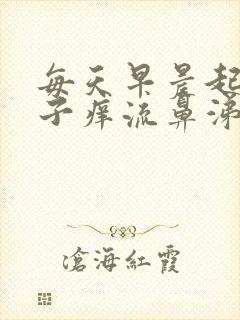 每天早晨起
子痒流鼻涕
滄海紅霞